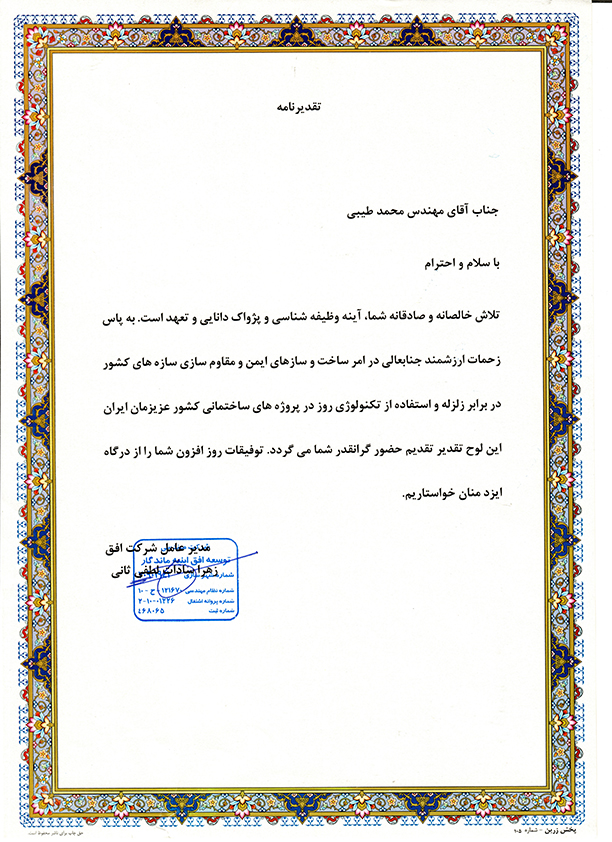 تقدیرنامه
جناب آقای مهندس محمد طیبی
با سلام و احترام
تلاش خالصانه و صادقانه شما، آینه وظیفه شناسی و پژواک دانایی و تعهد است. به پاس
زحمات ارزشمند جنابعالی در امر ساخت و سازهای ایمن و مقاوم سازی سازه های کشور
در برابر زلزله و استفاده از تکنولوژی روز در پروژه های ساختمانی کشور عزیزمان ایران
این لوح تقدیر تقدیم حضور گرانقدر شما می گردد. توفیقات روز افزون شما را از درگاه
ایزد منان خواستاریم.
مدیر عامل شرکت افق
توسعه افق ابنیه ماندگار
زهرا سادات لطفی ثانی
شماره
شماره نظام مهندسی ۱۲۱۶۷-ج-۱۰
شماره پروانه اشتغال ۲-۱۰-۰۱۲۲۶
شماره ثبت ۴۶۸۰۶۵
پخش زرین - شماره ۱۰۵
حق چاپ برای ناشر محفوظ است.